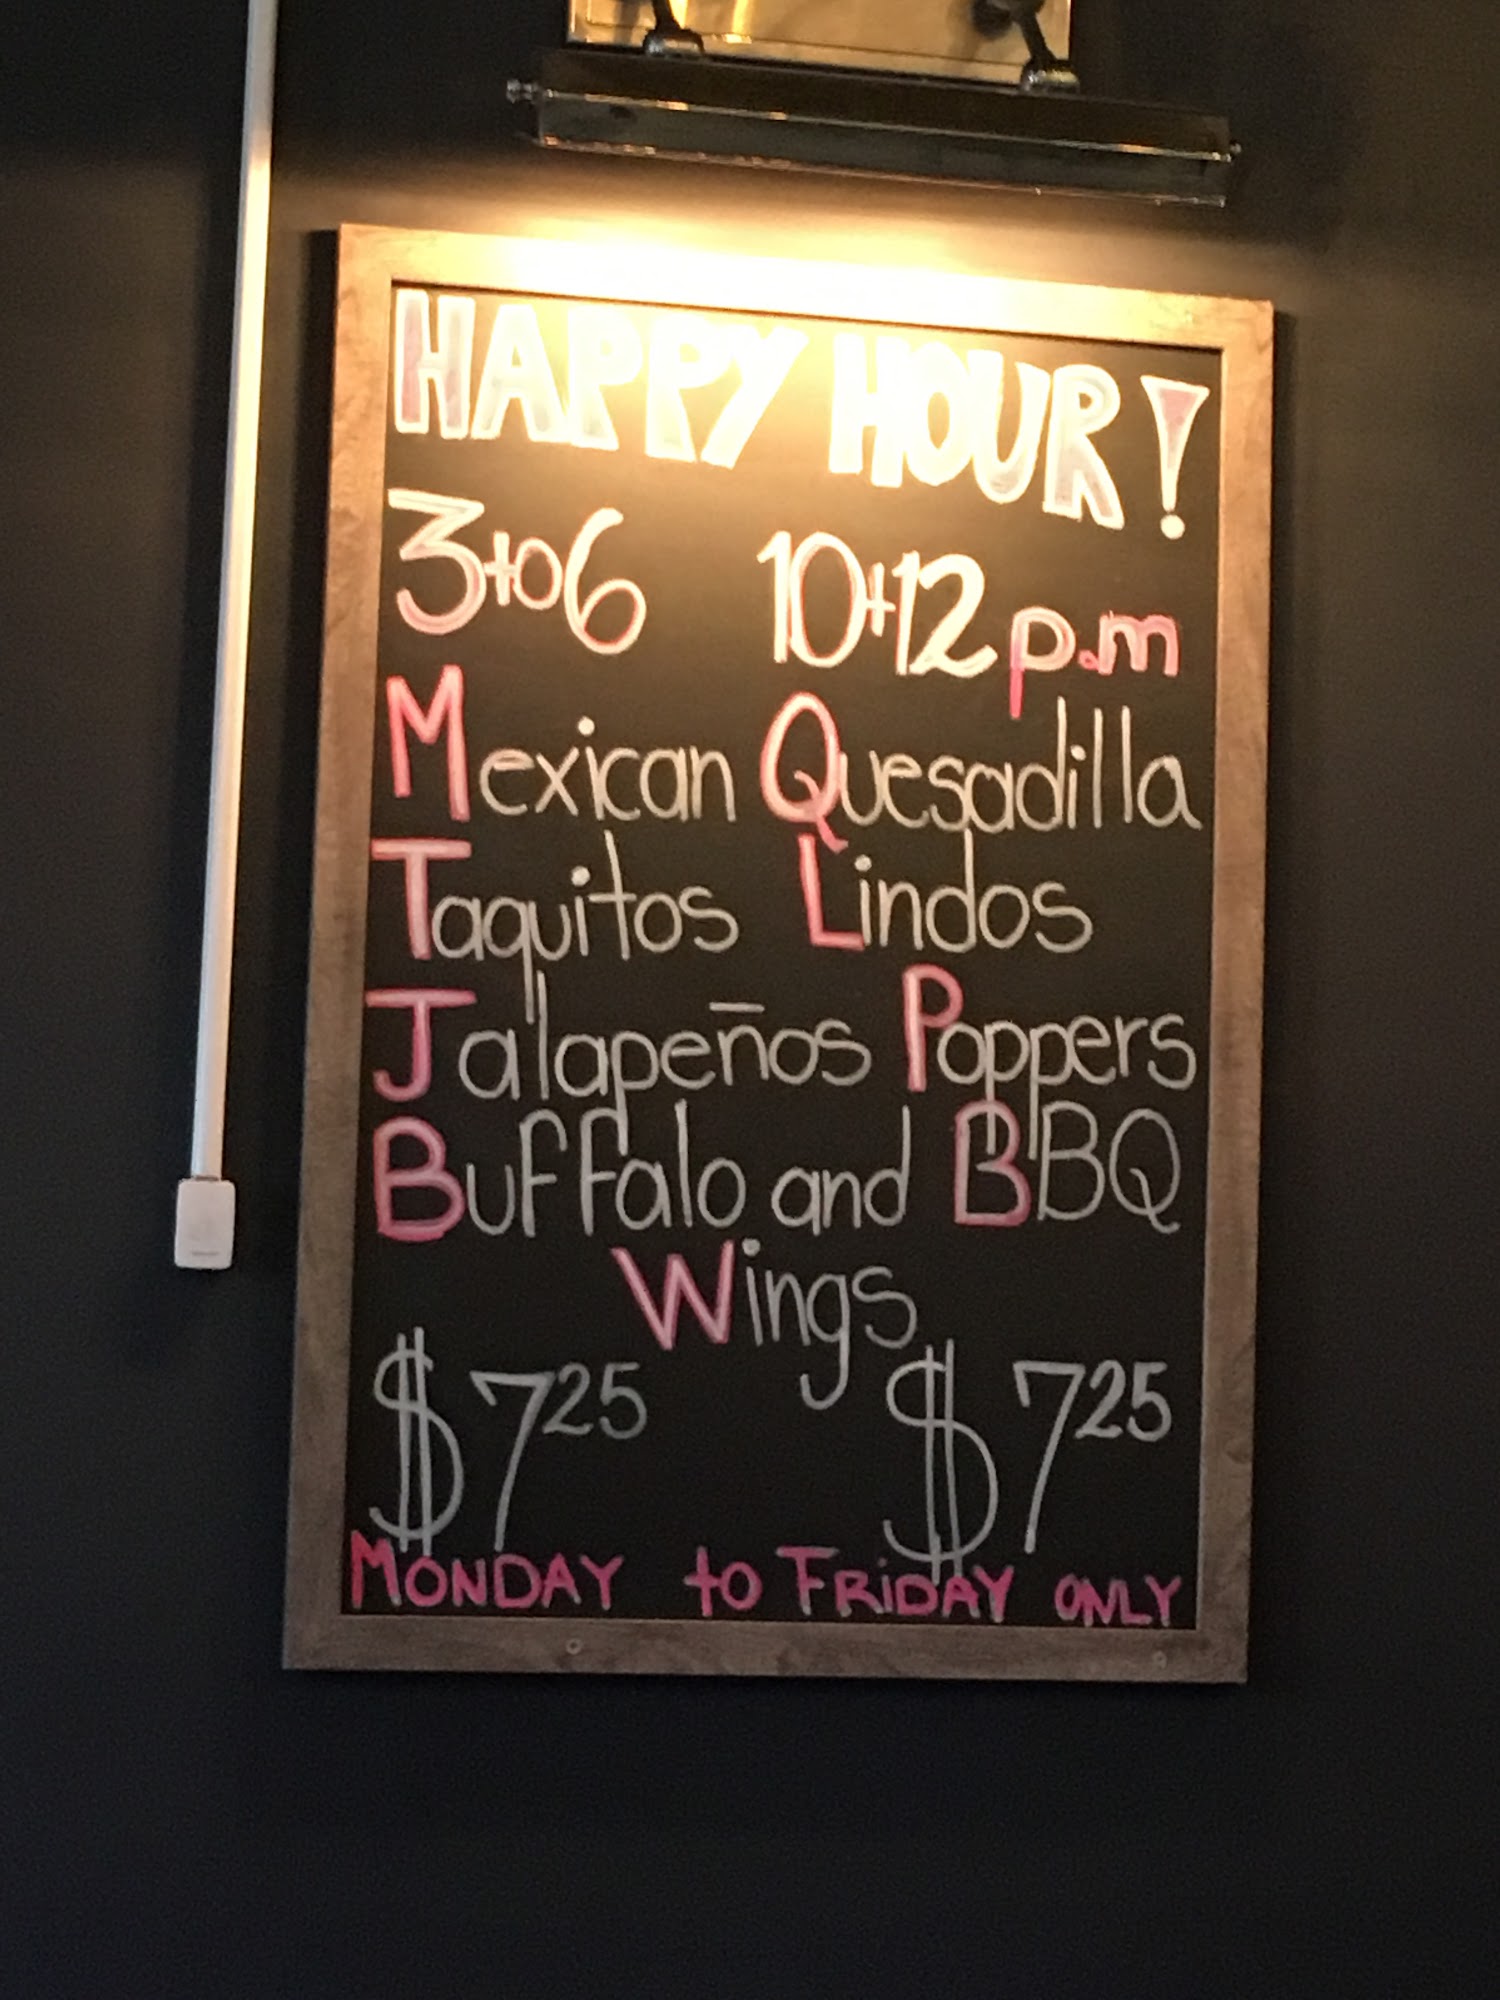 HAPPY HOUR!
3to6 10t12 p.m
Mexican Quesadilla
Taquitos Lindos
Jalapeños Poppers
Buffalo and BBQ
Wings
$7.25 $7.25
MONDAY to FRiDAY ONLY